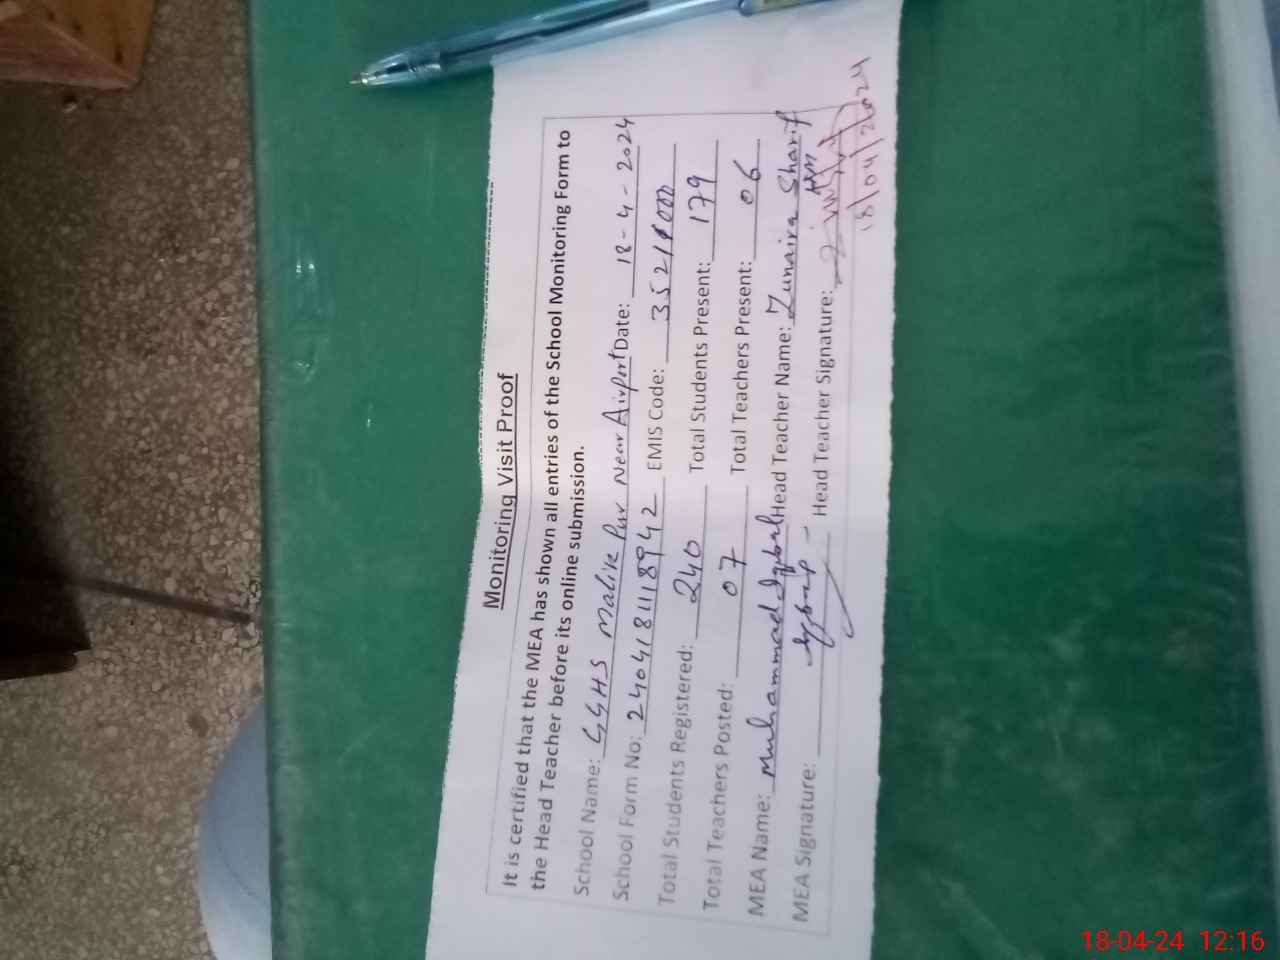 Monitoring Visit Proof
It is certified that the MEA has shown all entries of the School Monitoring Form to
the Head Teacher before its online submission.
School Name: GGHS Malik Pur Near Airport Date: 18-4-2024
School Form No: 24041811118942 EMIS Code: 35211000
Total Students Registered: 240 Total Students Present: 179
Total Teachers Posted: 07 Total Teachers Present: 06
MEA Name: Muhammad Iqbal Head Teacher Name: Zunaira Sharif
MEA Signature: Head Teacher Signature:
18/04/2024
18-04-24 12:16